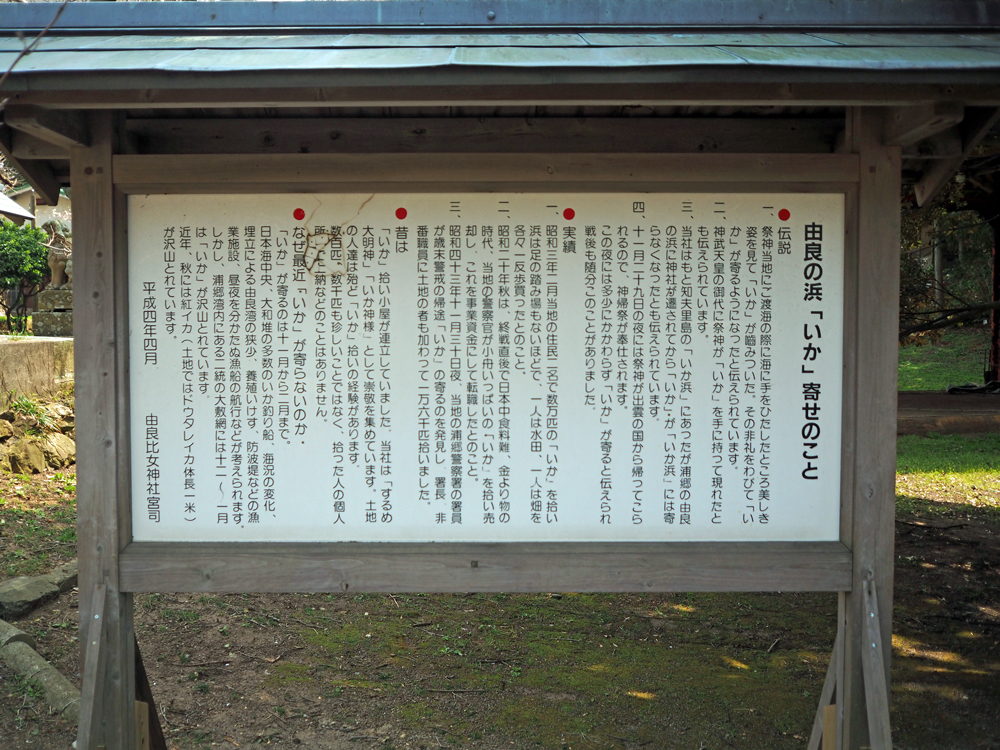 由良の浜「いか」寄せのこと
●伝説
一、祭神当地にご渡海の際に海に手をひたしたところ美しき
姿を見て、「いか」が嚙みついた、その非礼をわびて「い
か」が寄るようになったと伝えられています。
二、神武天皇の御代に祭神が「いか」を手に持って現れたと
も伝えられています。
三、当社はもと知夫里島の「いか浜」にあったが浦郷の由良
の浜に神社が遷されてから「いか」が「いか浜」には寄
らなくなったとも伝えられています。
四、十一月二十九日の夜には祭神が出雲の国から帰ってこら
れるので、神帰祭が奉仕されます。
この夜には多少にかかわらず「いか」が寄ると伝えられ
戦後も随分このことがありました。
●実績
一、昭和三年二月当地の住民二名で数万匹の「いか」を拾い
浜は足の踏み場もないほどで、一人は水田、一人は畑を
各々一反歩買ったとのこと。
二、昭和二十年秋は、終戦直後で日本中食料難、金より物の
時代、当地の警察官が小舟いっぱいの「いか」を拾い売
却し、これを事業資金にして転職したとのこと。
三、昭和四十三年十一月三十日夜、当地の浦郷警察署の署員
が歳末警戒の帰途「いか」の寄るのを発見し、署長、非
番職員に土地の者も加わって一万六千匹拾いました。
●昔は
「いか」拾い小屋が連立していました。当社は「するめ
大明神」「いか神様」として崇敬を集めています。土地
の人達は殆ど「いか」拾いの経験があります。
数百匹、数千匹も珍しいことではなく、拾った人の個人
所得、納などのことはありません。
●なぜ最近「いか」が寄らないのか
「いか」が寄るのは十一月から二月まで、
日本海中央、大和堆の多数のいか釣り船、海況の変化、
埋立による由良湾の狭少、養殖いけす、防波堤などの漁
業施設、昼夜を分かたぬ漁船の航行などが考えられます。
しかし、浦郷湾内にある二統の大敷網には十二～一月
は「いか」が沢山とれています。
近年、秋には紅イカ(土地ではドウタレイカ体長一米)
が沢山とれています。
平成四年四月
由良比女神社宮司